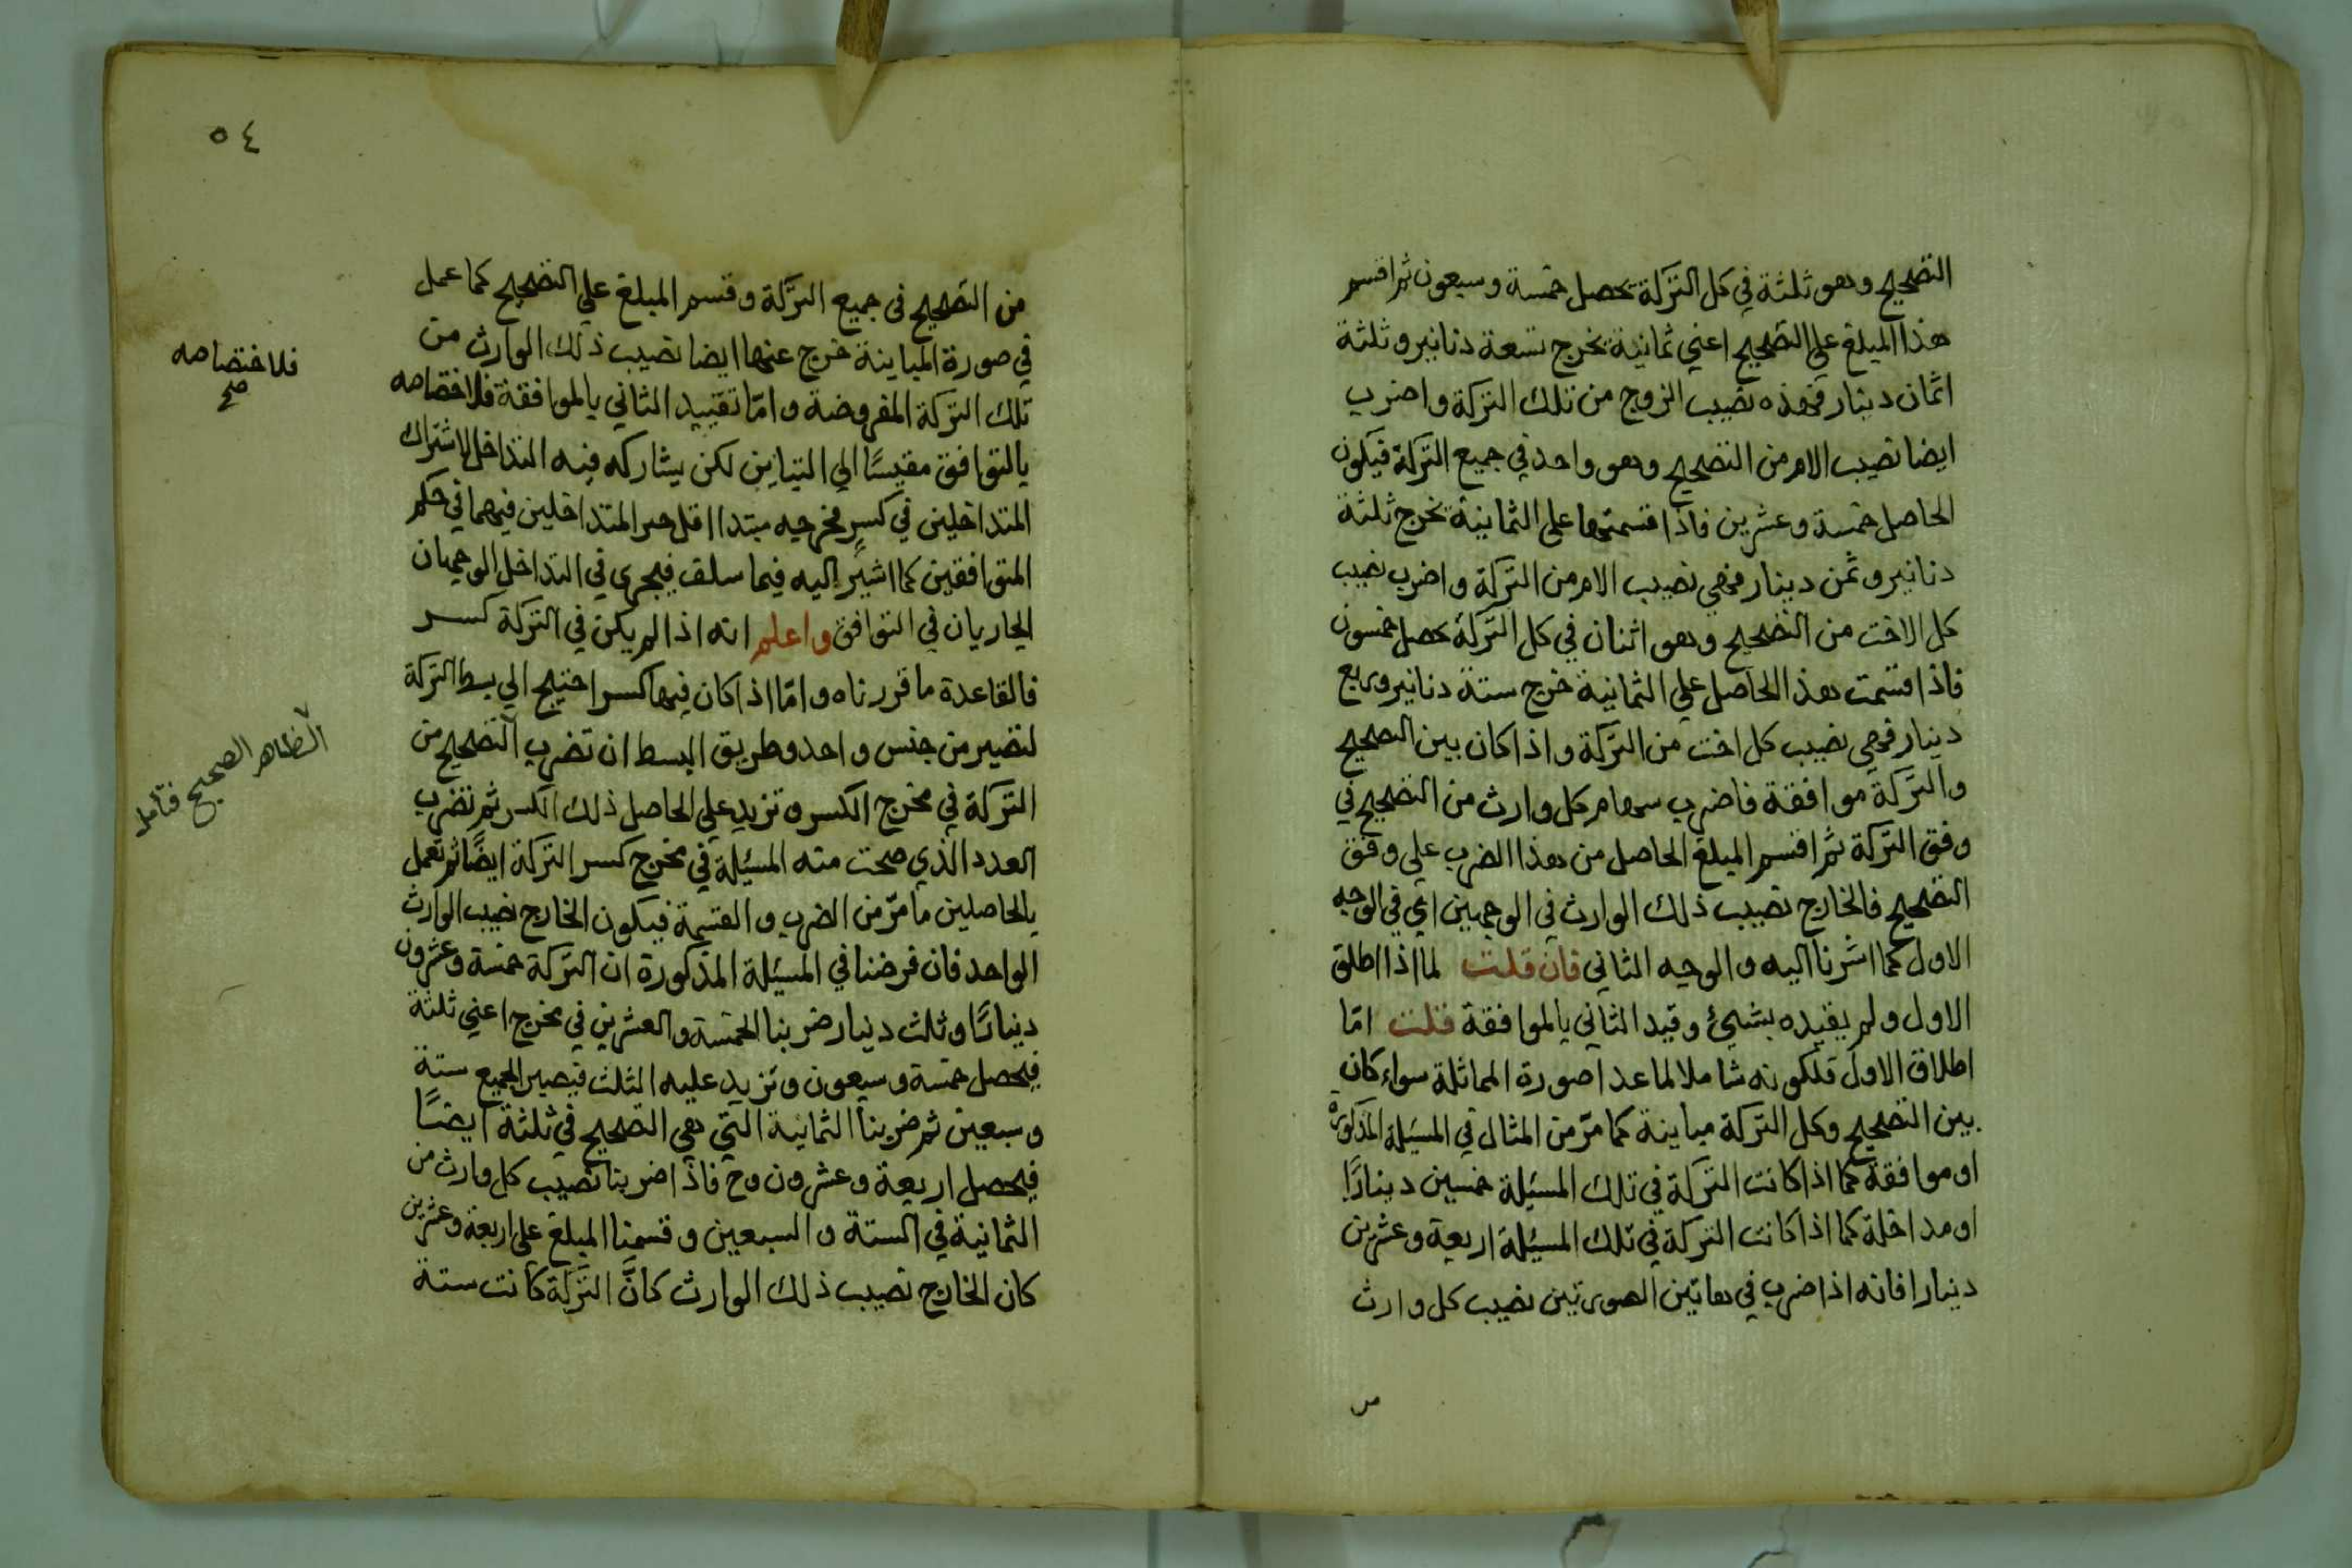 التصحيح وهو ثلثة في كل التركة يحصل خمسة وسبعون ثم اقسم
هذا المبلغ علي التصحيح اعني ثمانية يخرج تسعة دنانير وثلثة
اثمان دينار فهذه نصيب الزوج من تلك التركة واضرب
ايضا نصيب الام من التصحيح وهو واحد في جميع التركة فيكون
الحاصل خمسة وعشرين فاذا قسمتها علي الثمانية يخرج ثلثة
دنانير وثمن دينار فهي نصيب الام من التركة واضرب نصيب
كل الاخت من التصحيح وهو اثنان في كل التركة يحصل خمسون
فاذا قسمت هذا الحاصل علي الثمانية خرج ستة دنانير وربع
دينار فهي نصيب كل اخت من التركة واذا كان بين التصحيح
والتركة موافقة فاضرب سهام كل وارث من التصحيح في
وفق التركة ثم اقسم المبلغ الحاصل من هذا الضرب علي وفق
التصحيح فالخارج نصيب ذلك الوارث في الوجهين اي في الوجه
الاول كما اشرنا اليه والوجه الثاني فان قلت لما اذا اطلق
الاول ولم يقيده بشئ وقيد الثاني بالموافقة قلت امّا
اطلاق الاول فلكونه شاملا لما عدا صورة المماثلة سواء كان
بين التصحيح وكل التركة مباينة كما مرّ من المثال في المسئلة المذكورة
او موافقة كما اذا كانت التركة في تلك المسئلة خمسين دينارًا
او مداخلة كما اذا كانت التركة في تلك المسئلة اربعة وعشرين
دينارا فانه اذا ضرب في هاتين الصورتين نصيب كل وارث
من
٥٤
من التصحيح في جميع التركة وقسم المبلغ علي التصحيح كما عمل
في صورة المباينة خرج عنها ايضا نصيب ذلك الوارث من
تلك التركة المفروضة وامّا تقييد الثاني بالموافقة فلاختصاصه
بالتوافق مقيسًا الي التباين لكن يشاركه فيه التداخل لاشتراك
المتداخلين في كسر مخرجه مبتدا اقل المتداخلين فيهما في حكم
المتوافقين كما اشير اليه فيما سلف فيجري في التداخل الوجهان
الجاريان في التوافق واعلم انه اذا لم يكن في التركة كسر
فالقاعدة ما قررناه وامّا اذا كان فيها كسر احتيج الي بسط التركة
لتصير من جنس واحد وطريق البسط ان تضرب التصحيح من
التركة في مخرج الكسر وتزيد علي الحاصل ذلك الكسر ثم تضرب
العدد الذي صحت منه المسئلة في مخرج كسر التركة ايضًا ثم تعمل
بالحاصلين ما مرّ من الضرب والقسمة فيكون الخارج نصيب الوارث
الواحد فان فرضنا في المسئلة المذكورة ان التركة خمسة وعشرون
دينارًا وثلث دينار ضربنا الخمسة والعشرين في مخرج اعني ثلثة
فيحصل خمسة وسبعون وتزيد عليه الثلث فيصير الجميع ستة
وسبعين ثم ضربنا الثمانية التي هي التصحيح في ثلثة ايضًا
فيحصل اربعة وعشرون وح فاذا ضربنا نصيب كل وارث من
الثمانية في الستة والسبعين وقسمنا المبلغ علي اربعة وعشرين
كان الخارج نصيب ذلك الوارث كانّ التركة كانت ستة
فلاختصاصه
صح
الظاهر الصحيح فتأمل